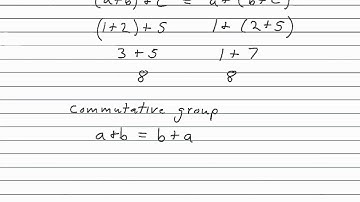 (a+b)+c = a+(b+c)
(1+2)+5 1+(2+5)
3+5 1+7
8 8
Commutative group
a+b = b+a